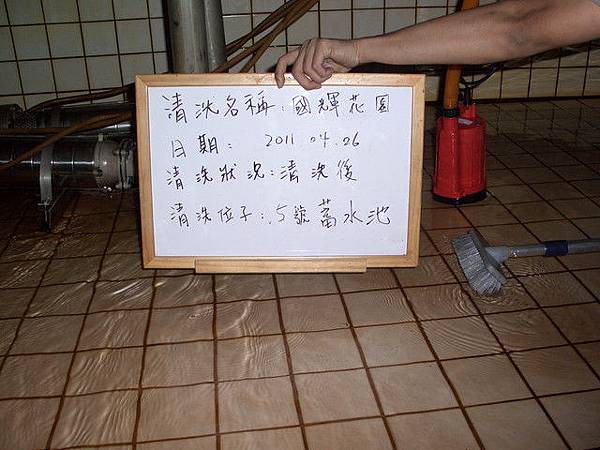 清洗名稱:國輝花園
日期: 2011 04.26
清洗狀況:清洗後
清洗位子:.5號蓄水池